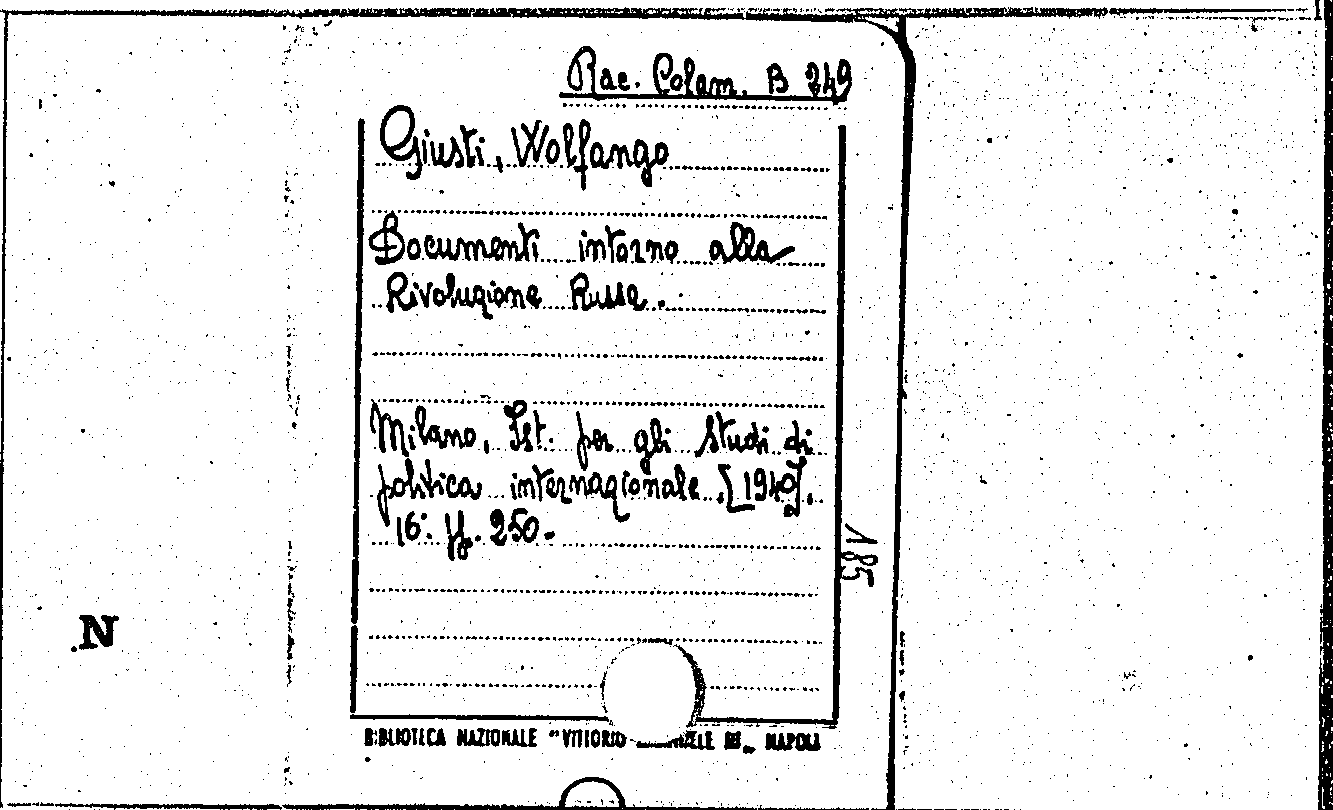 Rac. Colam. B 249
Giusti, Wolfango
Documenti intorno alla
Rivoluzione Russa.
Milano, Ist. per gli studi di
politica internazionale, [1940].
16°. pp. 250.
185
N
BIBLIOTECA NAZIONALE "VITTORIO III„ NAPOLI